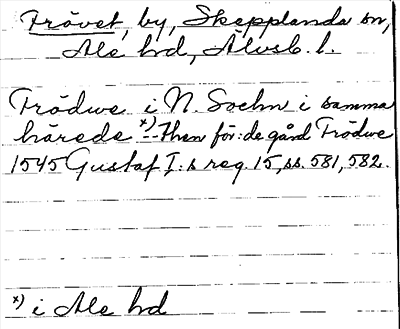 Frövet, by, Skepplanda sn,
Ale hd, Älvsb. l.
Frödwe i N. Sochn i samma
härede x) -- Then för:de gård Frödwe
1545 Gustaf I:s reg. 15, ss. 581, 582.
x) i Ale hd